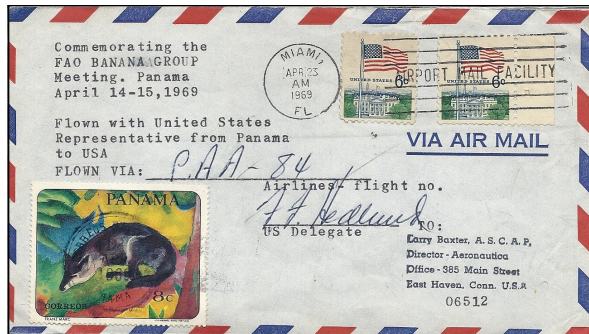 Commemorating the
FAO BANANA GROUP
Meeting. Panama
April 14-15,1969
Flown with United States
Representative from Panama
to USA
FLOWN VIA: P.A.A - 84
Airlines- flight no.
F. F. Hedlund
US Delegate
MIAMI,
APR 23
AM
1969
FL
UNITED STATES
6c
UNITED STATES
6c
AIRPORT MAIL FACILITY
VIA AIR MAIL
TO:
Larry Baxter, A. S. C. A. P,
Director - Aeronautica
Office - 385 Main Street
East Haven, Conn. U.S.A
06512
PANAMA
CORREOS
8c
FRANZ MARC